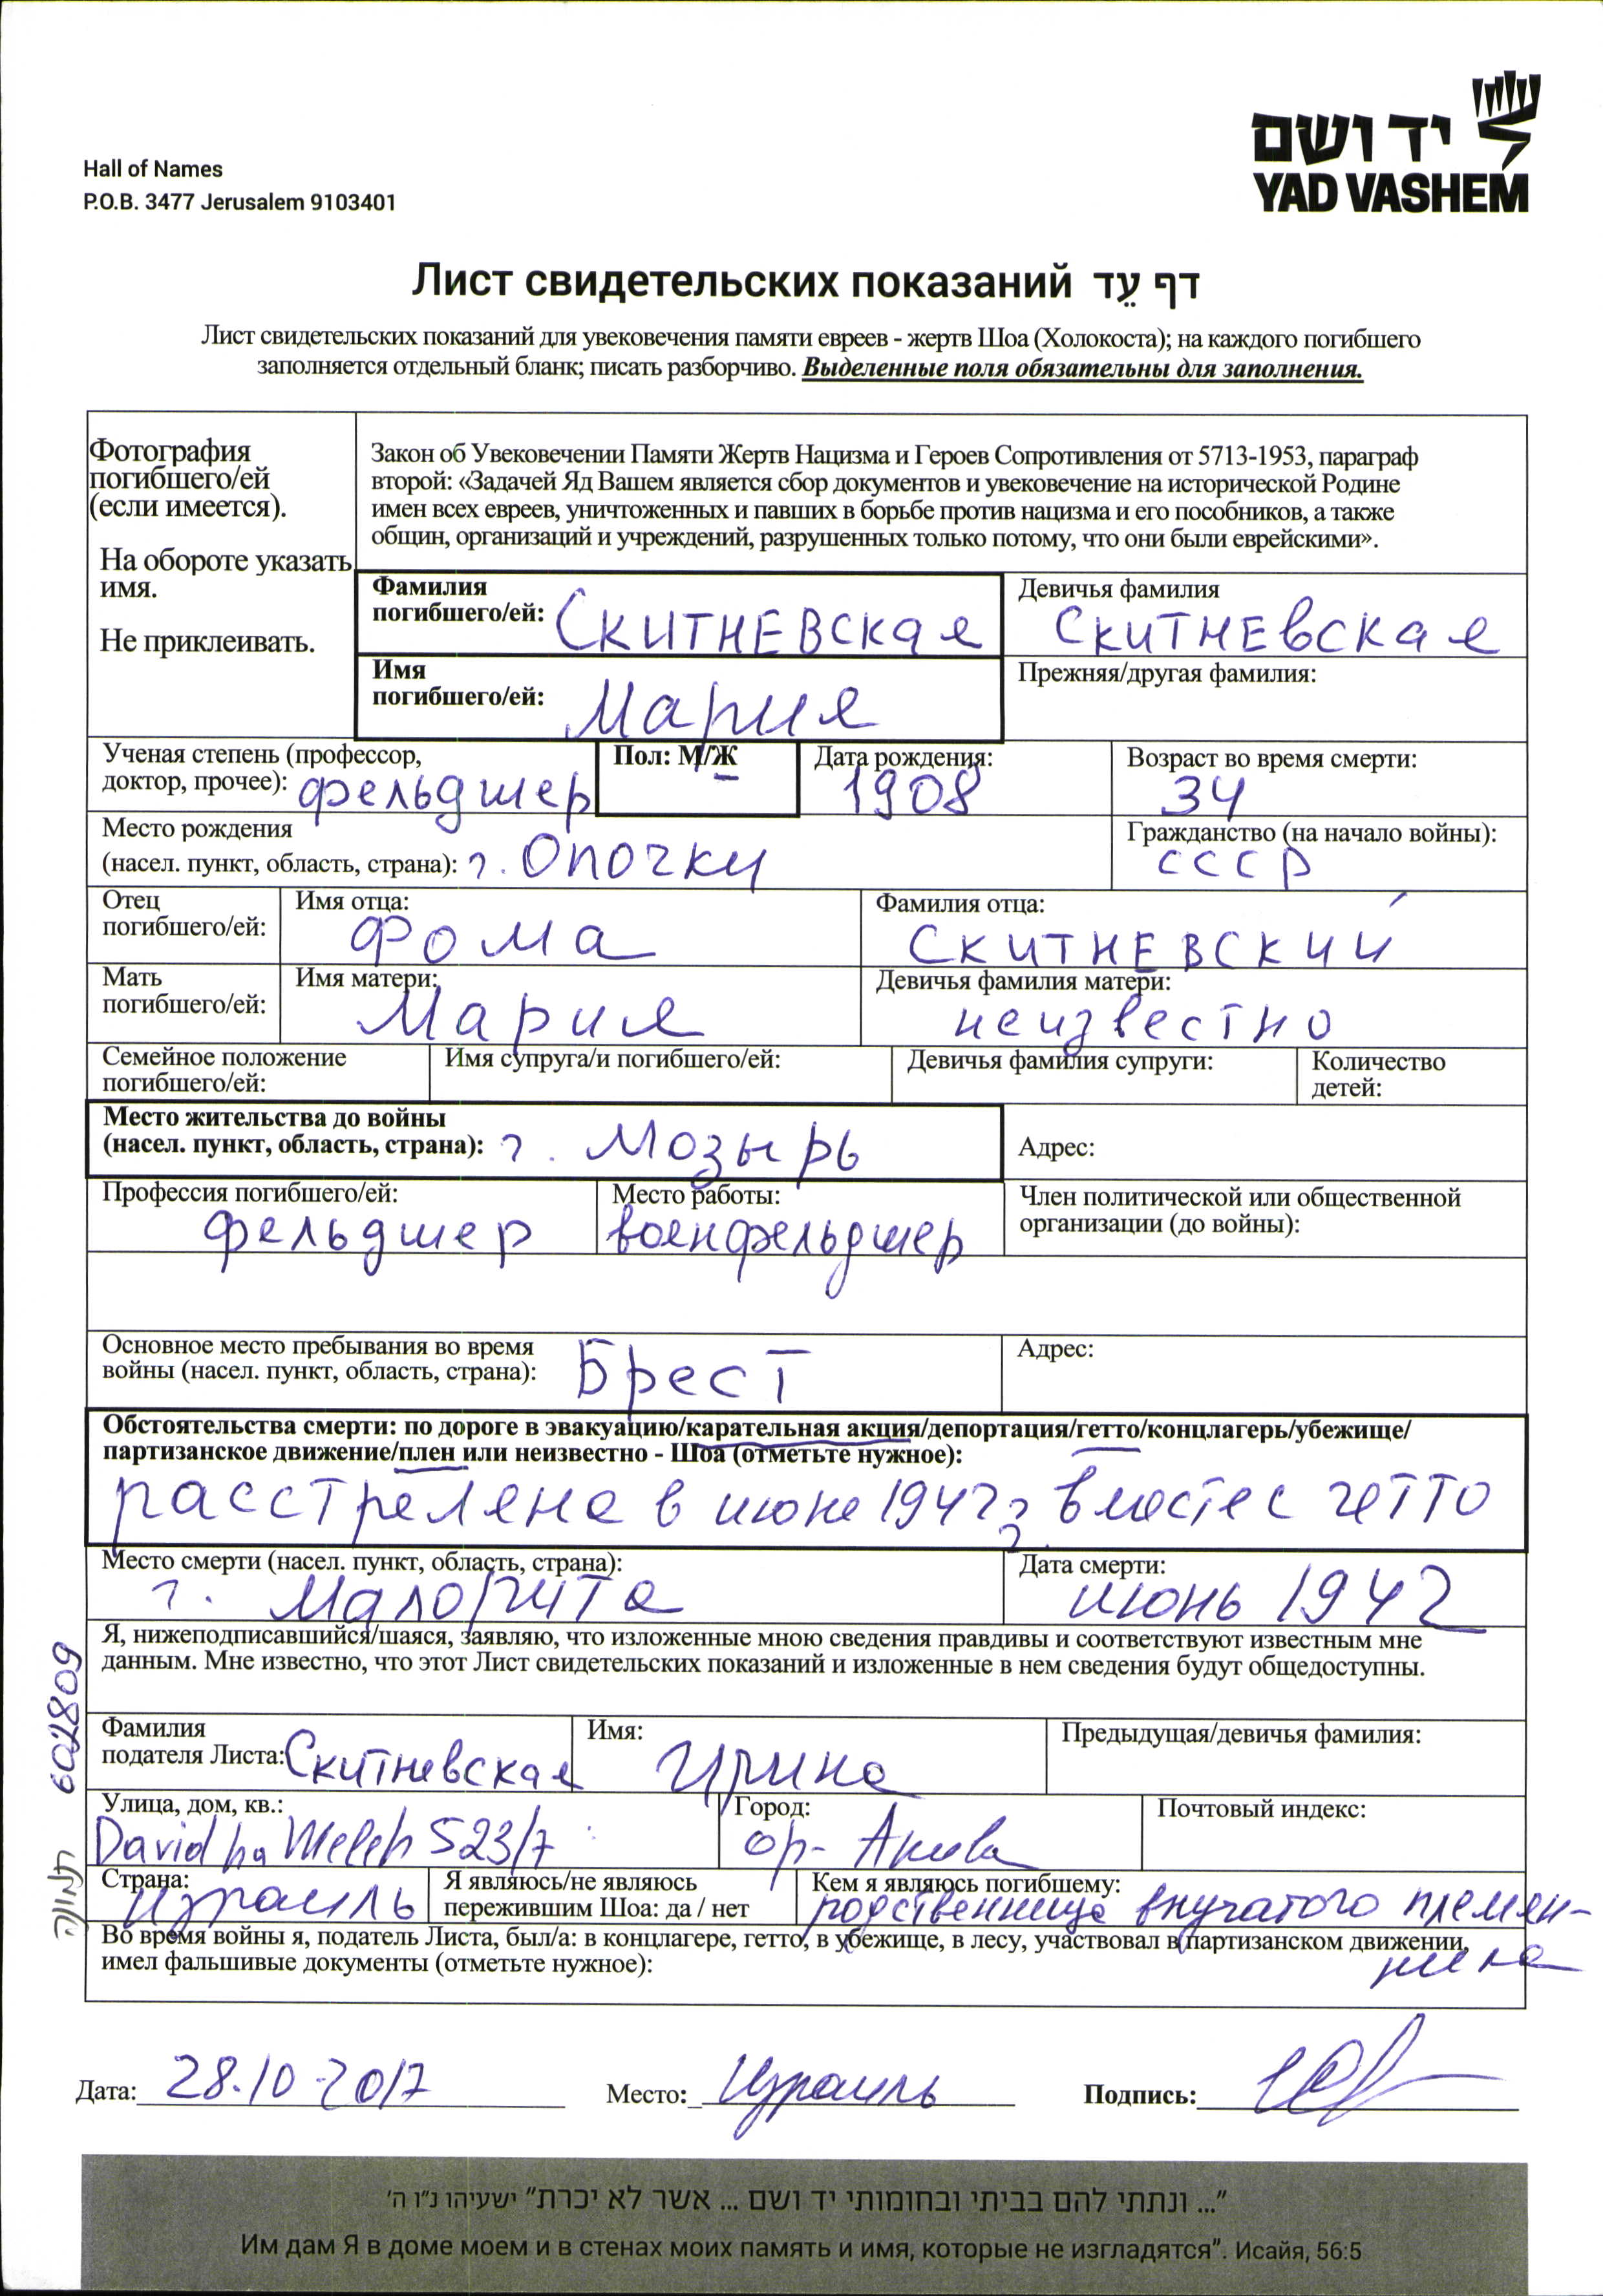 יד ושם
YAD VASHEM
Hall of Names
P.O.B. 3477 Jerusalem 9103401
Лист свидетельских показаний דף עֵד
Лист свидетельских показаний для увековечения памяти евреев - жертв Шоа (Холокоста); на каждого погибшего
заполняется отдельный бланк; писать разборчиво. Выделенные поля обязательны для заполнения.
Фотография
погибшего/ей
(если имеется).
На обороте указать
имя.
Не приклеивать.
Закон об Увековечении Памяти Жертв Нацизма и Героев Сопротивления от 5713-1953, параграф
второй: «Задачей Яд Вашем является сбор документов и увековечение на исторической Родине
имен всех евреев, уничтоженных и павших в борьбе против нацизма и его пособников, а также
общин, организаций и учреждений, разрушенных только потому, что они были еврейскими».
Фамилия
погибшего/ей: Скитневская
Девичья фамилия
Скитневская
Имя
погибшего/ей: Мария
Прежняя/другая фамилия:
Ученая степень (профессор,
доктор, прочее): фельдшер
Пол: М/Ж
Дата рождения:
1908
Возраст во время смерти:
34
Место рождения
(насел. пункт, область, страна): г. Опочки
Гражданство (на начало войны):
СССР
Отец
погибшего/ей:
Имя отца:
Фома
Фамилия отца:
Скитневский
Мать
погибшего/ей:
Имя матери:
Мария
Девичья фамилия матери:
неизвестно
Семейное положение
погибшего/ей:
Имя супруга/и погибшего/ей:
Девичья фамилия супруги:
Количество
детей:
Место жительства до войны
(насел. пункт, область, страна): г. Мозырь
Адрес:
Профессия погибшего/ей:
фельдшер
Место работы:
военфельдшер
Член политической или общественной
организации (до войны):
Основное место пребывания во время
войны (насел. пункт, область, страна): Брест
Адрес:
Обстоятельства смерти: по дороге в эвакуацию/карательная акция/депортация/гетто/концлагерь/убежище/
партизанское движение/плен или неизвестно - Шоа (отметьте нужное):
расстреляна в июне 1942 г. вместе с гетто
Место смерти (насел. пункт, область, страна):
г. Малорита
Дата смерти:
июнь 1942
Я, нижеподписавшийся/шаяся, заявляю, что изложенные мною сведения правдивы и соответствуют известным мне
данным. Мне известно, что этот Лист свидетельских показаний и изложенные в нем сведения будут общедоступны.
Фамилия
подателя Листа: Скитневская
Имя:
Ирина
Предыдущая/девичья фамилия:
Улица, дом, кв.:
David ha Meleh 523/7
Город:
ор-Акива
Почтовый индекс:
Страна:
Израиль
Я являюсь/не являюсь
пережившим Шоа: да / нет
Кем я являюсь погибшему:
родственница внучатого племян-
ника
Во время войны я, податель Листа, был/а: в концлагере, гетто, в убежище, в лесу, участвовал в партизанском движении,
имел фальшивые документы (отметьте нужное):
תמונה 602809
Дата: 28.10.2017
Место: Израиль
Подпись:
"... ונתתי להם בביתי ובחומותי יד ושם ... אשר לא יכרת" ישעיהו נ"ו ה'
Им дам Я в доме моем и в стенах моих память и имя, которые не изгладятся”. Исайя, 56:5